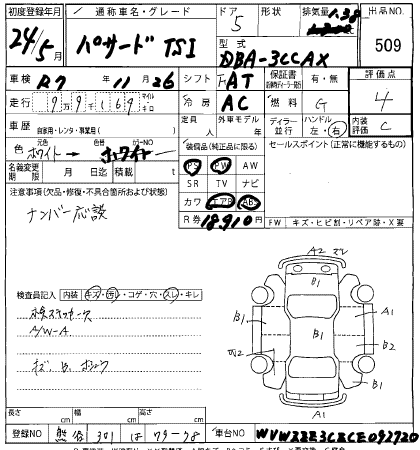 初度登録年月 通称車名・グレード ドア 形状 排気量 1.38 出品No.
24年5月 パサード TSI 5 509
型式 DBA-3CCAX
車検 R7 11 26 シフト FAT 保証書 有・無 評価点
走行 999169 マイル キロ 冷房 AC 燃料 G 4
車歴 自家用・レンタ・事業用( ) 定員 人 外車モデル 年 ディーラー 並行 ハンドル 左・右 内装評価 C
色 元色 ホワイト → 色替 ホワイト カラーNO 装備品(純正品に限る) セールスポイント(正常に機能するもの)
名義変更期限 月 日迄 積載 t PS PW AW
SR TV ナビ
注意事項(欠品・修復・不具合箇所および状態) カワ エアB AB
ナンバー応談 R券 18,910円 FW キズ・ヒビ割・リペア跡・X要
A2
B1
検査員記入 内装 キズ・汚レ・コゲ・穴・スレ・キレ
A/W-A
B1 B1 A1
B2
キズ、B、
B1
A1
長さ cm 幅 cm 高さ cm
登録NO 熊谷 301 は 79-78 車台NO WVWZZZ3CZCE092720